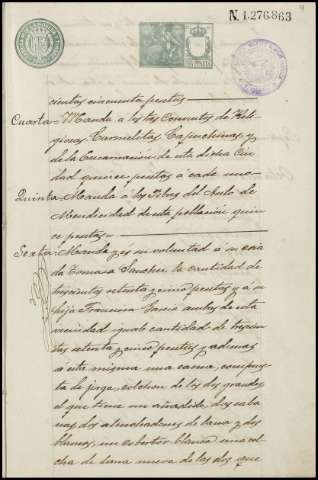 N. 1.276.863
cientas cincuenta pesetas
Cuarta = Manda a los tres Conventos de Reli
giosas Carmelitas Capuchinas y
de la Encarnacion de esta dicha Ciu
dad quince pesetas á cada uno
Quinta = Manda á los Pobres del Asilo de
Mendicidad de esta poblacion quin
ce pesetas =
Sexta = Manda y és su voluntad á su cria
da Tomasa Sanchez la cantidad de
trescientas setenta y cinco pesetas y á su
hija Francisca Garcia ambas de esta
vecindad igual cantidad de trescien
tas setenta y cinco pesetas y ademas
á esta misma una cama, compues
ta de jerga, colchon de los dos grandes
el que tiene un añadido, dos saba
nas, dos almohadones de lana y dos
blancos, un cobertor blanco una col
cha de lana nueva de las dos que